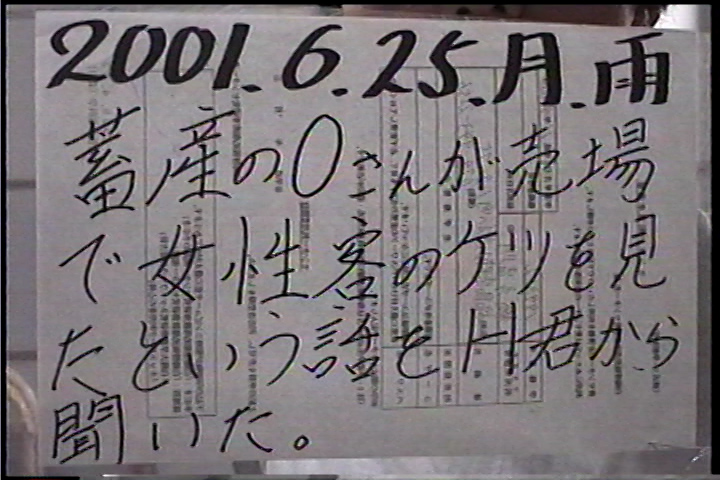 2001.6.25.月.雨
蓄産のOさんが売場
で女性客のケツを見
たという話をH君から
聞いた。